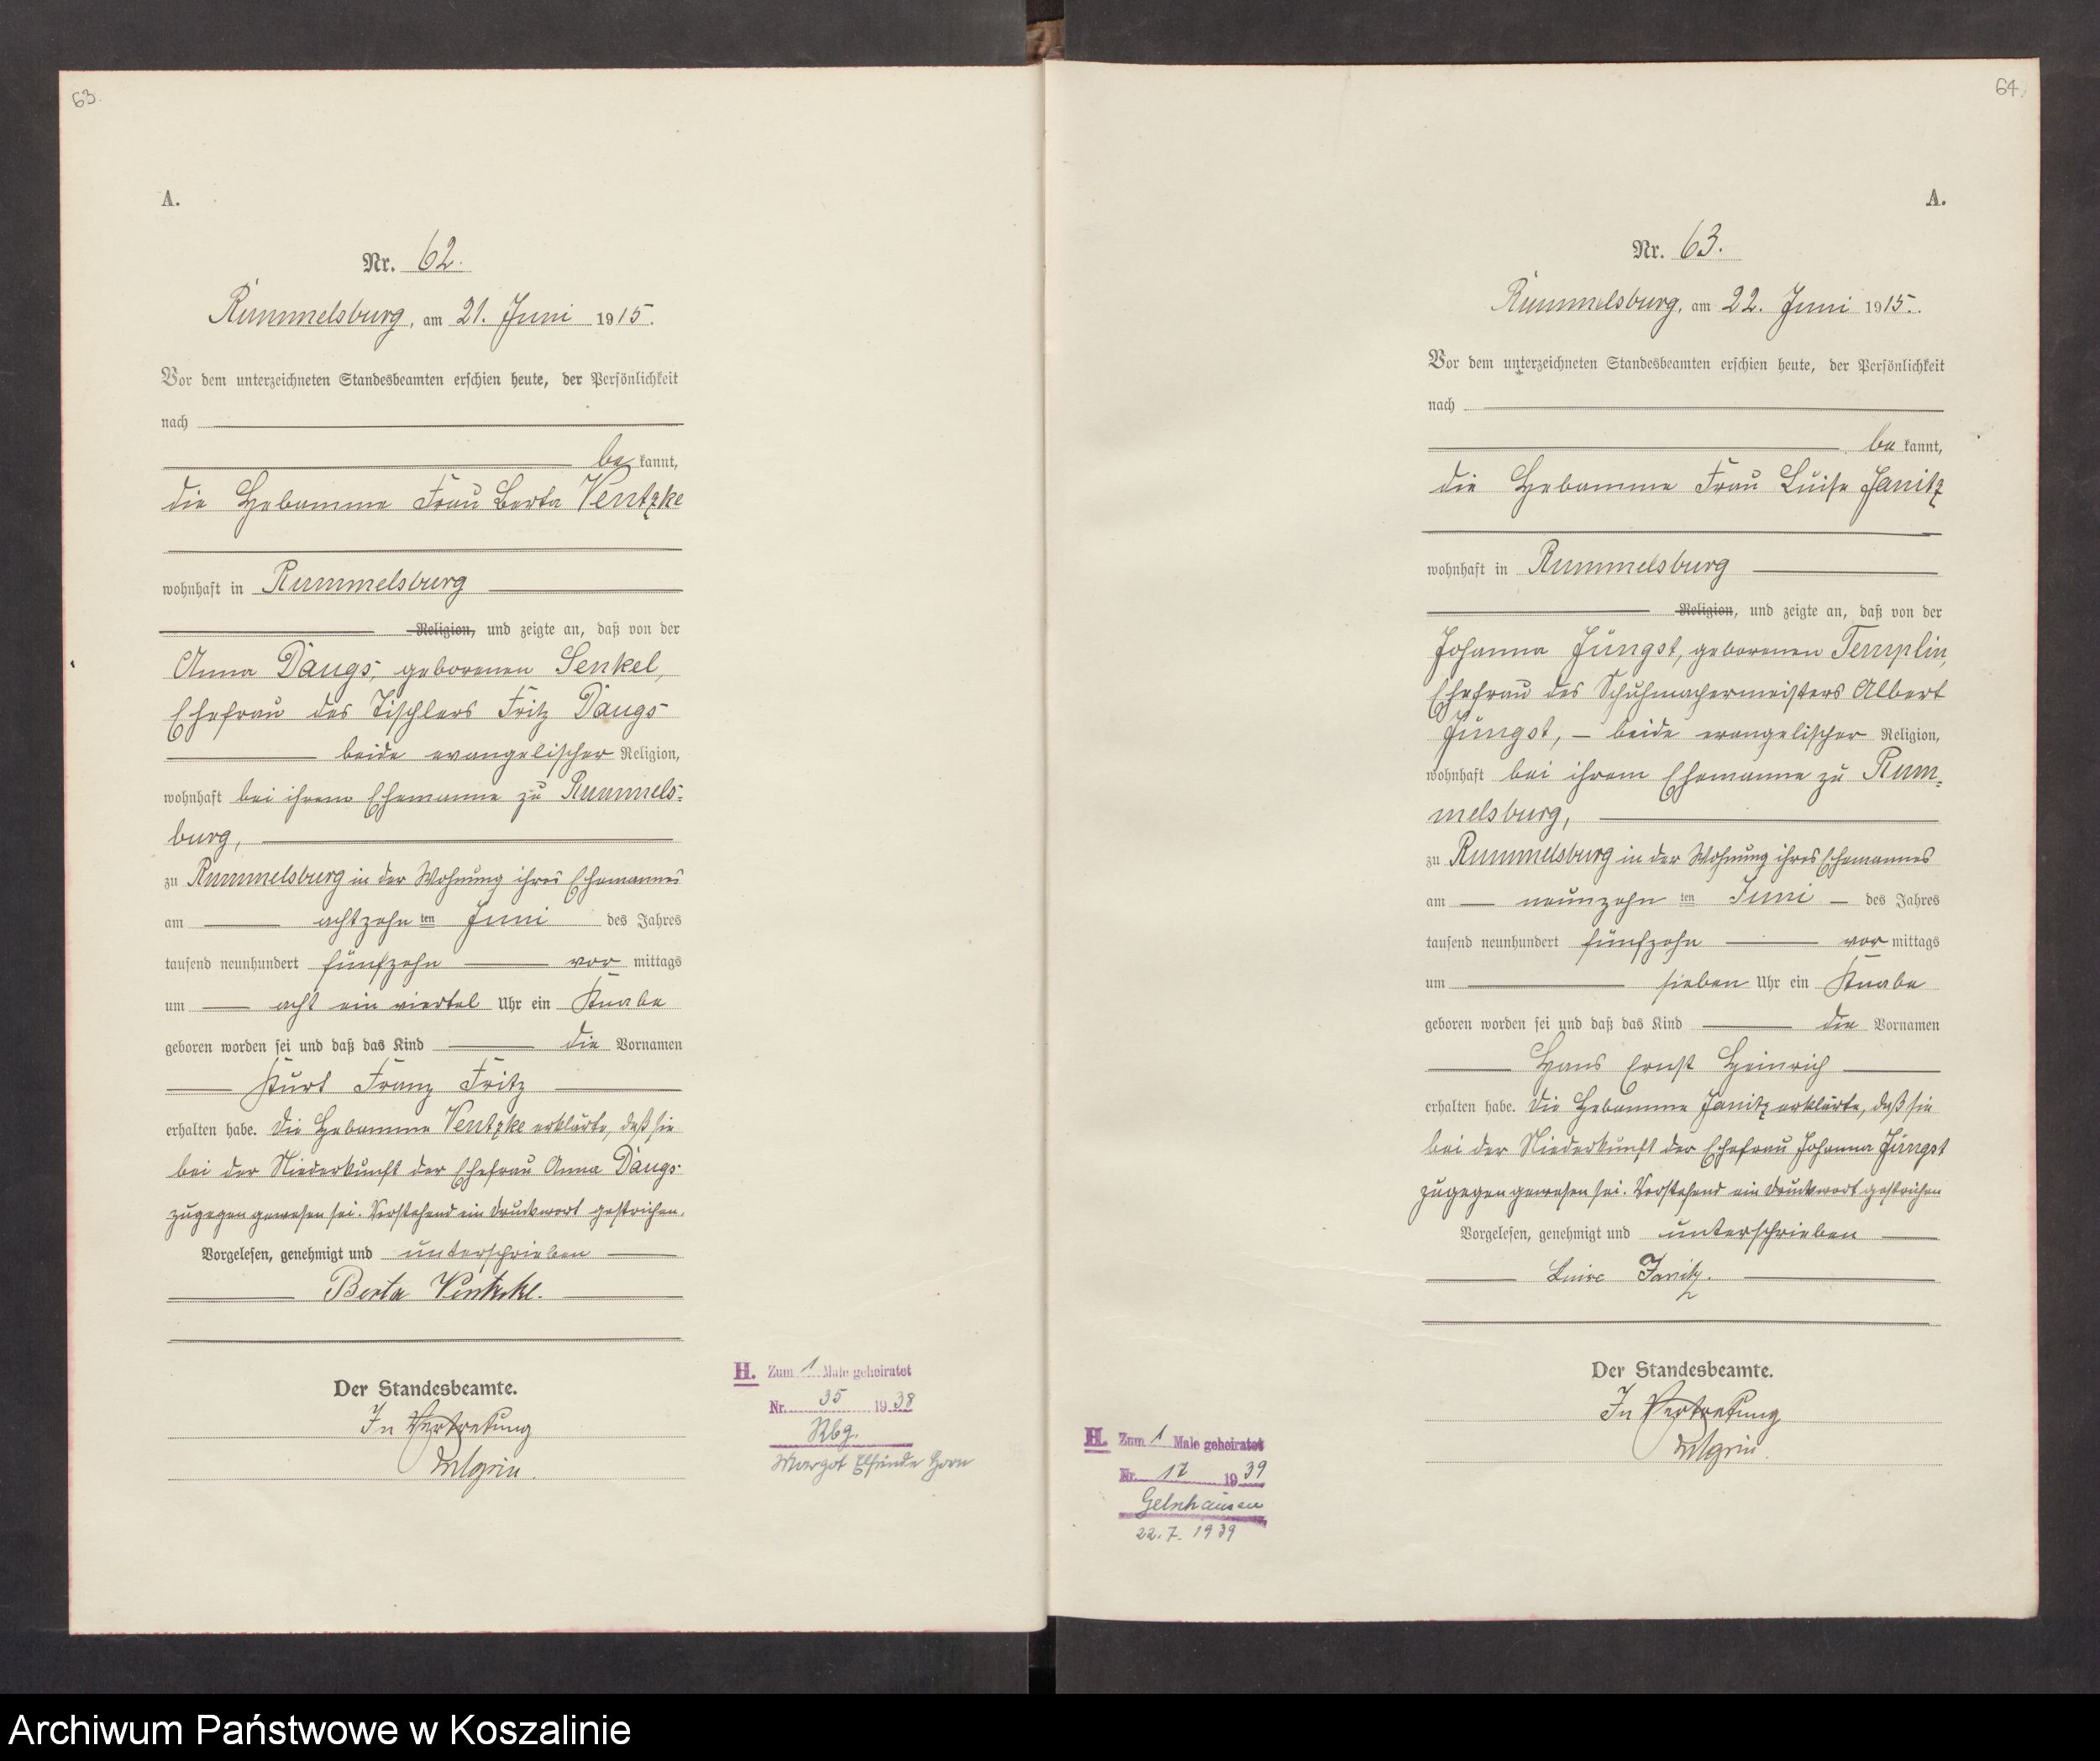 63.
A.
Nr. 62.
Rummelsburg, am 21. Juni 1915.
Vor dem unterzeichneten Standesbeamten erschien heute, der Persönlichkeit
nach
be kannt,
die Hebamme Frau Berta Ventzke
wohnhaft in Rummelsburg
Religion, und zeigte an, daß von der
Anna Daugs, geborenen Senkel,
Ehefrau des Tischlers Fritz Daugs
beide evangelischer Religion,
wohnhaft bei ihrem Ehemanne zu Rummels-
burg,
zu Rummelsburg in der Wohnung ihres Ehemannes
am achtzehn ten Juni des Jahres
tausend neunhundert fünfzehn vor mittags
um acht ein viertel Uhr ein Knabe
geboren worden sei und daß das Kind die Vornamen
Kurt Franz Fritz
erhalten habe. Die Hebamme Ventzke erklärte, daß sie
bei der Niederkunft der Ehefrau Anna Daugs
zugegen gewesen sei. Vorstehend ein Druckwort gestrichen.
Vorgelesen, genehmigt und unterschrieben
Berta
Der Standesbeamte.
In Vertretung
H. Zum 1 Male geheiratet
Nr. 35 1938
Rbg.
Margot Horn
64.
A.
Nr. 63.
Rummelsburg, am 22. Juni 1915.
Vor dem unterzeichneten Standesbeamten erschien heute, der Persönlichkeit
nach
be kannt,
die Hebamme Frau Luise Janitz
wohnhaft in Rummelsburg
Religion, und zeigte an, daß von der
Johanna Jüngst, geborenen Templin,
Ehefrau des Schuhmachermeisters Albert
Jüngst, – beide evangelischer Religion,
wohnhaft bei ihrem Ehemanne zu Rum-
melsburg,
zu Rummelsburg in der Wohnung ihres Ehemannes
am neunzehn ten Juni des Jahres
tausend neunhundert fünfzehn vor mittags
um sieben Uhr ein Knabe
geboren worden sei und daß das Kind die Vornamen
Hans Ernst Heinrich
erhalten habe. Die Hebamme Janitz erklärte, daß sie
bei der Niederkunft der Ehefrau Johanna Jüngst
zugegen gewesen sei. Vorstehend ein Druckwort gestrichen
Vorgelesen, genehmigt und unterschrieben
Luise Janitz.
Der Standesbeamte.
In Vertretung
H. Zum 1 Male geheiratet
Nr. 17 1939
Gelnhausen
22.7.1939
Archiwum Państwowe w Koszalinie